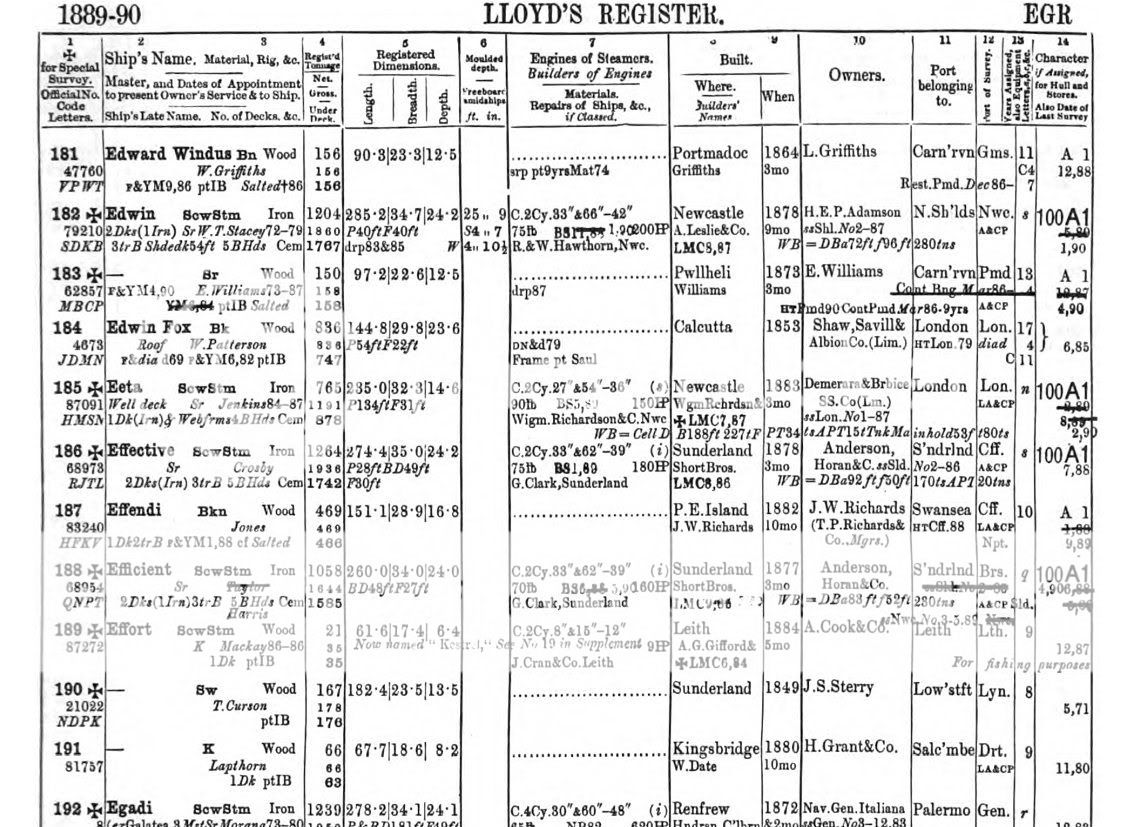 1889-90 LLOYD'S REGISTER. EGR
1 2 3 4 5 6 7 8 9 10 11 12 13 14
✠ for Special Survey. Official No. Code Letters.
Ship's Name. Material, Rig, &c.
Master, and Dates of Appointment to present Owner's Service & to Ship.
Ship's Late Name. No. of Decks. &c.
Regist'd Tonnage Net. Gross. Under Deck.
Registered Dimensions. Length. Breadth. Depth.
Moulded depth. Freeboard amidships ft. in.
Engines of Steamers. Builders of Engines
Materials. Repairs of Ships, &c., if Classed.
Built. Where. Builders' Names When
Owners.
Port belonging to.
Port of Survey.
Years Assigned, also Equipment Letters, &c.
Character if Assigned, for Hull and Stores. Also Date of Last Survey
181 Edward Windus Bn Wood 156 90·3 23·3 12·5 Portmadoc 1864 L.Griffiths Carn'rvn Gms. 11 A 1
47760 W.Griffiths 156 srp pt9yrsMat74 Griffiths 3mo C4 12,88
VPWT F&YM9,86 ptIB Salted†86 156 Rest.Pmd.Dec86– 7
182 ✠ Edwin ScwStm Iron 1204 285·2 34·7 24·2 25 " 9 C.2Cy.33"&66"–42" Newcastle 1878 H.E.P.Adamson N.Sh'lds Nwc. s 100A1
79210 2dks(1Irn) Sr W.T.Stacey72–79 1860 P40ftF40ft S4 " 7 75lb 1,90 200HP A.Leslie&Co. 9mo ssShl.No2–87 A&CP 5,89
SDKB 3trB Shdedk54ft 5BHds Cem 1767 drp83&85 W 4 " 10½ R.&W.Hawthorn,Nwc. LMC8,87 WB =DBa72ftf96ft 280tns 1,90
183 ✠ — Sr Wood 150 97·2 22·6 12·5 Pwllheli 1873 E.Williams Carn'rvn Pmd 13 A 1
62857 F&YM4,90 E.Williams73–87 158 drp87 Williams 3mo Cont.Bng.Mar86– 4
MBCP ptIB Salted 158 HTPmd90ContPmdMar86-9yrs A&CP 4,90
184 Edwin Fox Bk Wood 836 144·8 29·8 23·6 Calcutta 1853 Shaw,Savill& London Lon. 17
4673 Roof W.Patterson 836 P54ftF22ft DN&d79 AlbionCo.(Lim.) HTLon.79 diad 4 6,85
JDMN F&dia d69 F&YM6,82 ptIB 747 Frame pt Saul C 11
185 ✠ Eeta ScwStm Iron 765 235·0 32·3 14·6 C.2Cy.27"&54"–36" (s) Newcastle 1883 Demerara&Brbice London Lon. n 100A1
87091 Well deck Sr Jenkins84–87 1191 P134ftF31ft 90lb BS5,89 150HP WgmRchrdsn& 3mo SS.Co(Lm.) LA&CP
HMSN 1Dk(Irn)& Webfrms4BHds Cem 878 Wigm.Richardson&C.Nwc ✠LMC7,87 ssLon.No1–87
WB=CellD B188ft 227tF PT34tsAPT15tTnkMainhold53ft80ts 2,90
186 ✠ Effective ScwStm Iron 1264 274·4 35·0 24·2 C.2Cy.33"&62"–39" (i) Sunderland 1878 Anderson, S'ndrlnd Cff. s 100A1
68973 Sr Crosby 1936 P28ftBD49ft 75lb BS1,89 180HP ShortBros. 3mo Horan&C.ssSld. No2–86 A&CP 7,88
RJTL 2Dks(Irn) 3trB 5BHds Cem 1742 F30ft G.Clark,Sunderland LMC8,86 WB =DBa92ftf50ft 170tsAPT 20tns
187 Effendi Bkn Wood 469 151·1 28·9 16·8 P.E.Island 1882 J.W.Richards Swansea Cff. 10 A 1
83240 Jones 469 J.W.Richards 10mo (T.P.Richards& HTCff.88 LA&CP 1,88
HFKV 1Dk2trB F&YM1,88 cf Salted 466 Co.,Mgrs.) Npt. 9,89
188 ✠ Efficient ScwStm Iron 1058 260·0 34·0 24·0 C.2Cy.33"&62"–39" (i) Sunderland 1877 Anderson, S'ndrlnd Brs. q 100A1
68954 Sr Taylor 1644 BD48ftF27ft 70lb 5,90 160HP ShortBros. 3mo Horan&Co. 4,90
QNPT 2Dks(1Irn)3trB 5BHds Cem 1585 G.Clark,Sunderland WB =DBa83ftf52ft 230tns A&CP Sld.
Harris ssNwc.No.3–5.89
189 ✠ Effort ScwStm Wood 21 61·6 17·4 6·4 C.2Cy.8"&15"–12" Leith 1884 A.Cook&Co. Leith Lth. 9
87272 K Mackay86–86 35 Now named "Kestrel," See No 19 in Supplement 9HP A.G.Gifford& 5mo 12,87
1Dk ptIB 35 J.Cran&Co.Leith ✠LMC6,84 For fishing purposes
190 ✠ — Sw Wood 167 182·4 23·5 13·5 Sunderland 1849 J.S.Sterry Low'stft Lyn. 8
21022 T.Curson 178 5,71
NDPK ptIB 176
191 — K Wood 66 67·7 18·6 8·2 Kingsbridge 1880 H.Grant&Co. Salc'mbe Drt. 9
81757 Lapthorn 66 W.Date 10mo LA&CP 11,80
1Dk ptIB 63
192 ✠ Egadi ScwStm Iron 1239 278·2 34·1 24·1 C.4Cy.30"&60"–48" (i) Renfrew 1872 Nav.Gen.Italiana Palermo Gen. r